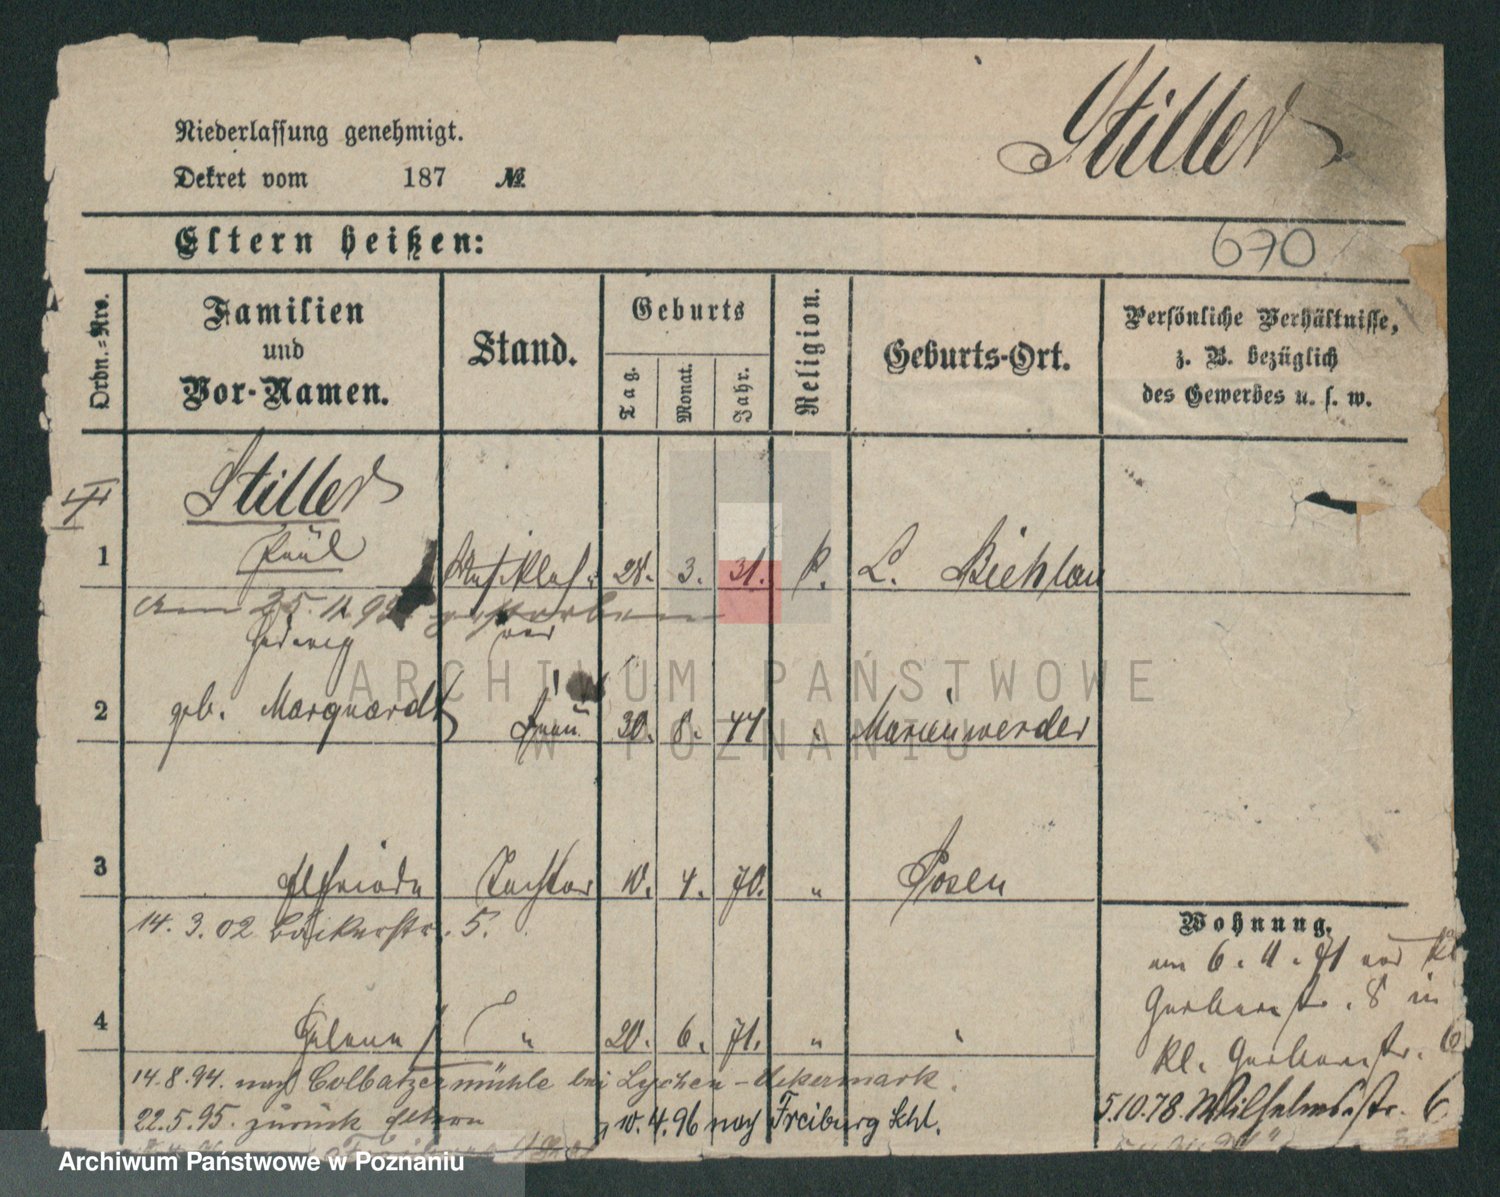 Stiller
Niederlassung genehmigt.
Dekret vom 187 №
670
Eltern heißen:
Ordn.=Nro.
Familien
und
Vor-Namen.
Stand.
Geburts
Tag.
Monat.
Jahr.
Religion.
Geburts-Ort.
Persönliche Verhältnisse,
z. B. bezüglich
des Gewerbes u. s. w.
Stiller
1 Paul 28. 3. 31. P. L. Biehlau
am 25. 11. 92 gestorben
Hedwig
2 geb. Marquardt Frau 30. 8. 44 " Marienwerder
3 Elfriede Tochter 10. 4. 70. " Posen
14. 3. 02 Bäckerstr. 5.
Wohnung.
am 6. 4. 71 von Kl.
Gerberstr. 8 in
Kl. Gerberstr. 6
4 Helene " 20. 6. 71. " "
14.8.94. nach Colbatzermühle bei Lychen - Uckermark.
22.5.95. zurück Eltern
10.4.96 nach Freiburg Schl.
5.10.78. Wilhelmstr. 6
ARCHIWUM PAŃSTWOWE
W POZNANIU
Archiwum Państwowe w Poznaniu